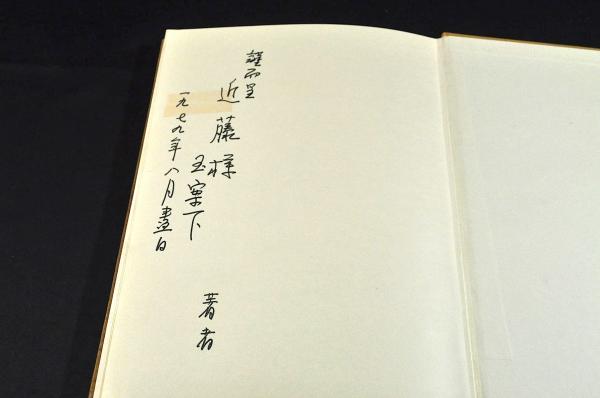 謹而呈
近藤様
玉案下
一九七九年八月盡日
著者